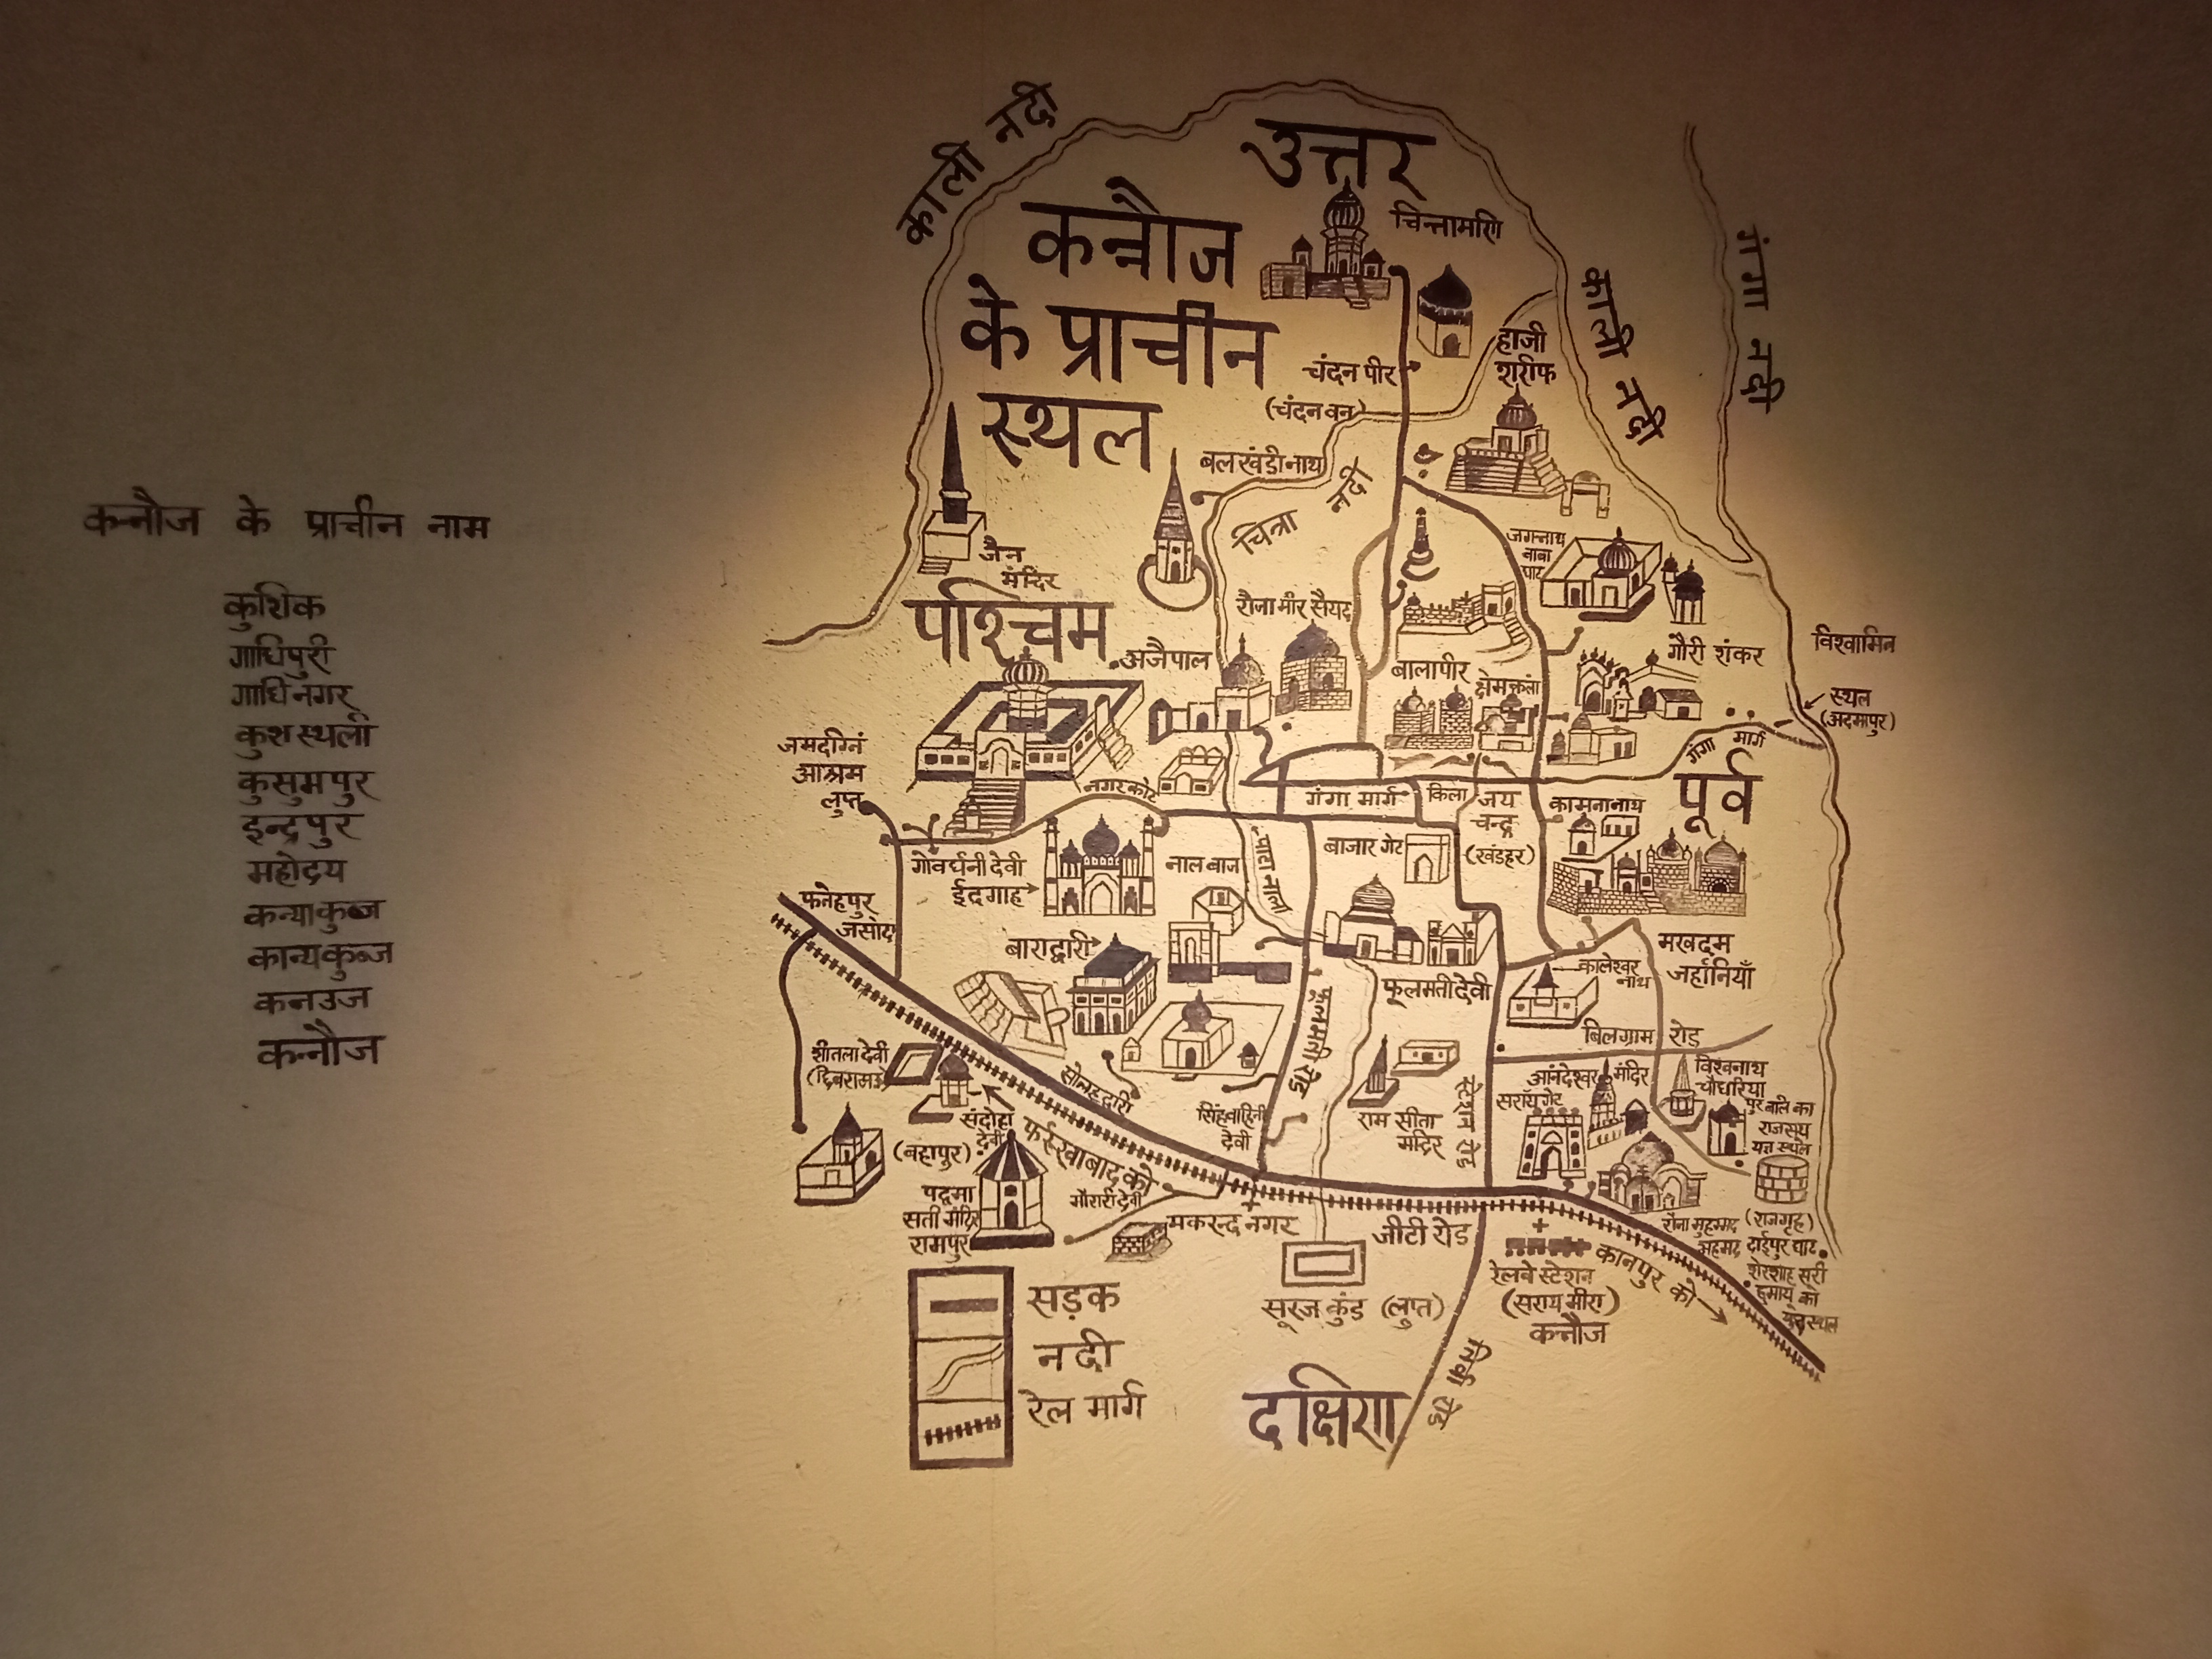 कन्नौज के प्राचीन नाम
कुशिक
गाधिपुरी
गाधिनगर
कुशस्थली
कुसुमपुर
इन्द्रपुर
महोदय
कन्याकुब्ज
कान्यकुब्ज
कनउज
कन्नौज
काली नदी
उत्तर
कन्नौज
के प्राचीन
स्थल
चिन्तामणि
काली नदी
गंगा नदी
हाजी
शरीफ
चंदन पीर
(चंदन वन)
बलखंडी नाथ
चित्रा नदी
जैन
मंदिर
जगन्नाथ
बाबा
पश्चिम
रौजा मीर सैयद
अजैपाल
बालापीर
क्षेमकला
गौरी शंकर
स्थल
(अदमापुर)
गंगा मार्ग
पूर्व
आश्रम
लुप्त
नगर कोट
गंगा मार्ग
किला
जय
चन्द्र
(खंडहर)
कामनानाथ
गोवर्धनी देवी
ईदगाह
नाल बाज
पाटा नाला
बाजार गेट
बाराद्वारी
फूलमती देवी
फूलमती रोड
मखदम
जहांनियाँ
कालेश्वर
नाथ
बिलग्राम रोड
शीतला देवी
सोलह द्वारी
सिंहवाहिनी
देवी
राम सीता
मंदिर
स्टेशन रोड
आनंदेश्वर मंदिर
सरॉय गेट
विश्वनाथ
चौधरिया
पुर
राजसूय
यज्ञ स्थल
देवी
पद्मा
सती मंदिर
रामपुर
फर्रुखाबाद को
मकरन्द नगर
जीटी रोड
(राजगृह)
सूरज कुंड (लुप्त)
रेलवे स्टेशन
(सराय मीरा)
कन्नौज
कानपुर को
सड़क
नदी
रेल मार्ग
दक्षिण